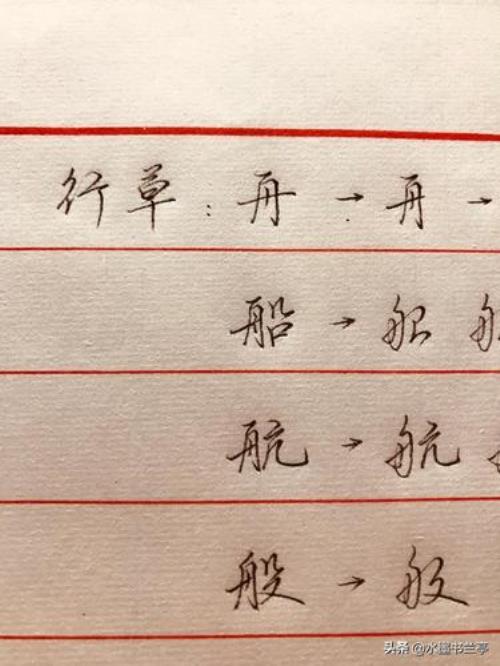 行草：舟→舟→
船→船
航→航
般→般
头条 @水墨书兰亭